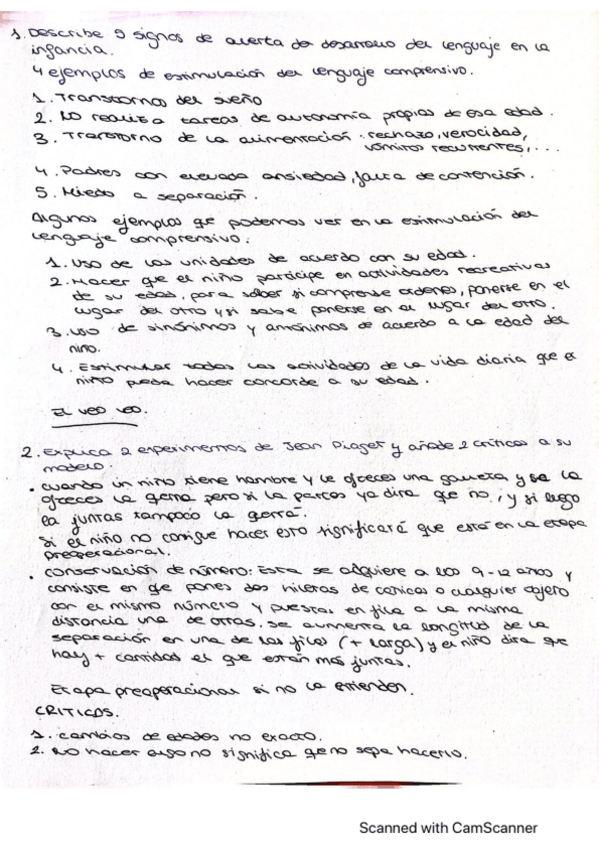 1. Describe 5 signos de alerta de desarrollo del lenguaje en la
infancia.
4 ejemplos de estimulación del lenguaje comprensivo.
1. Transtornos del sueño
2. No realiza tareas de autonomía propias de esa edad.
3. Transtorno de la alimentación: rechazo, verocidad,
vómitos recurrentes,...
4. Padres con elevada ansiedad, falta de contención.
5. Miedo a separación.
Algunos ejemplos que podemos ver en la estimulación del
lenguaje comprensivo:
1. Uso de las unidades de acuerdo con su edad.
2. Hacer que el niño participe en actividades recreativas
de su edad, para saber si comprende ordenes, ponerse en el
lugar del otro y si sabe ponerse en el lugar del otro.
3. Uso de sinónimos y antónimos de acuerdo a la edad del
niño.
4. Estimular todas las actividades de la vida diaria que el
niño pueda hacer concorde a su edad.
EL VEO VEO.
2. Explica 2 experimentos de Jean Piaget y añade 2 críticas a su
modelo.
• Cuando un niño tiene hambre y le ofreces una galleta y se la
ofreces la querrá pero si la partes ya dirá que no, y si luego
la juntas tampoco la querrá.
Si el niño no consigue hacer esto significará que está en la etapa
preoperacional.
• Conservación de número: Esta se adquiere a los 9-12 años y
consiste en que pones dos hileras de canicas o cualquier objeto
con el mismo número y puestas en fila a la misma
distancia una de otras. Se aumenta la longitud de la
separación en una de las filas (+ larga) y el niño dirá que
hay + cantidad el que están más juntas.
Etapa preoperacional si no la entienden.
CRITICAS.
1. cambios de edades no exacto.
2. No hacer algo no significa que no sepa hacerlo.
Scanned with CamScanner